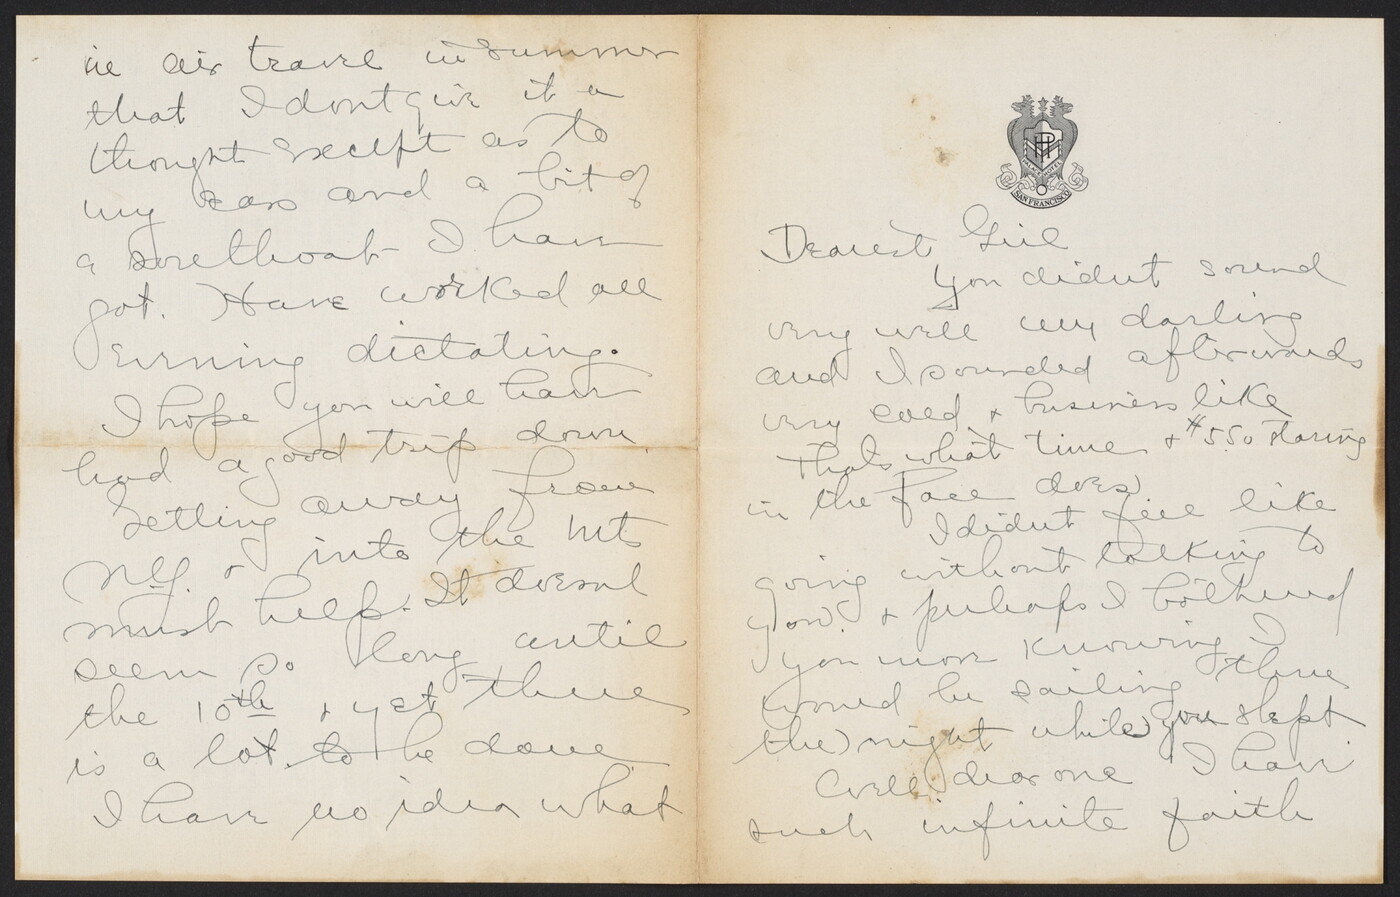 PH
PALACE HOTEL
SAN FRANCISCO
Dearest Girl
You didnt sound
very well my darling
and I sounded afterwards
very cold & business like
Thats what time & $5.50 staring
in the face does
I didnt feel like
going without talking to
you. & perhaps I bothered
you more knowing I
would be sailing thru
the night while you slept
Well dear one I have
such infinite faith
in air travel in summer
that I dont give it a
thought except as to
my ears and a bit of
a sorethoat I have
got. Have worked all
Evening dictating.
I hope you will have
had a good trip down
Getting away from
N.Y. & into the Mts
must help. It doesnt
seem so long until
the 10th & yet there
is a lot to be done
I have no idea what